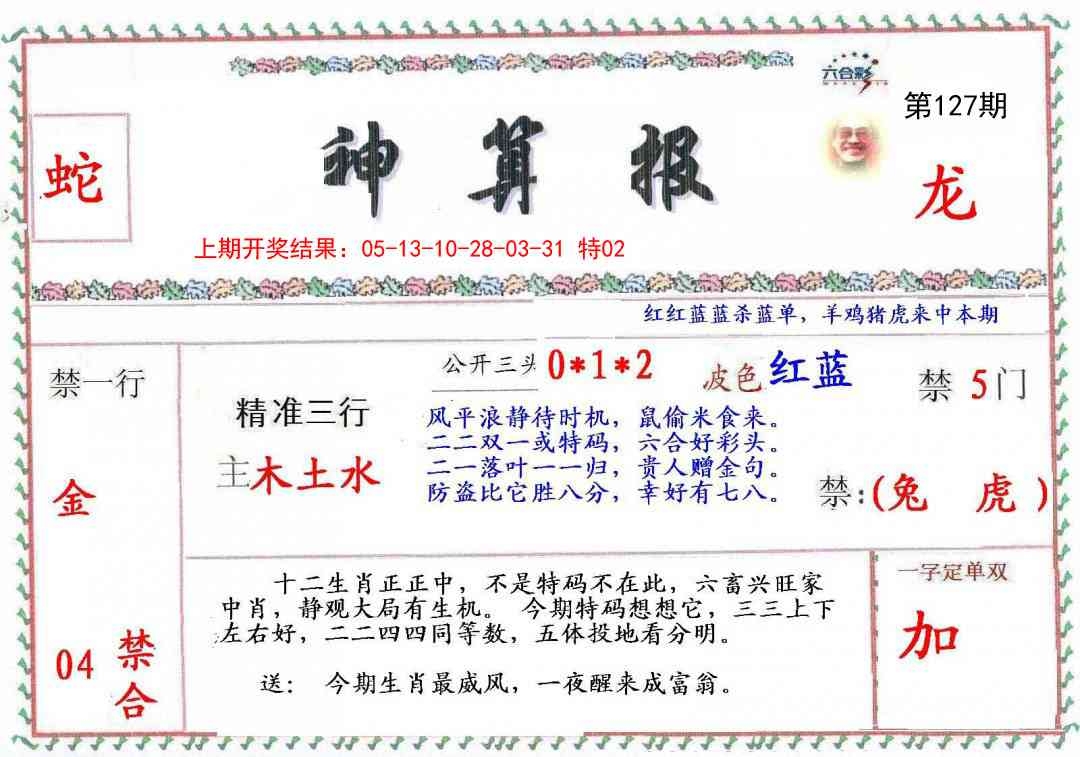 六合彩
第127期
蛇
神算报
龙
上期开奖结果：05-13-10-28-03-31 特02
红红蓝蓝杀蓝单，羊鸡猪虎来中本期
禁一行
金
04
禁合
精准三行
主木土水
公开三头0*1*2
波色红蓝
风平浪静待时机，鼠偷米食来。
二二双一或特码，六合好彩头。
二一落叶一一归，贵人赠金句。
防盗比它胜八分，幸好有七八。
禁5门
禁:(兔 虎)
十二生肖正正中，不是特码不在此，六畜兴旺家
中肖，静观大局有生机。 今期特码想想它，三三上下
左右好，二二四四同等数，五体投地看分明。
送： 今期生肖最威风，一夜醒来成富翁。
一字定单双
加